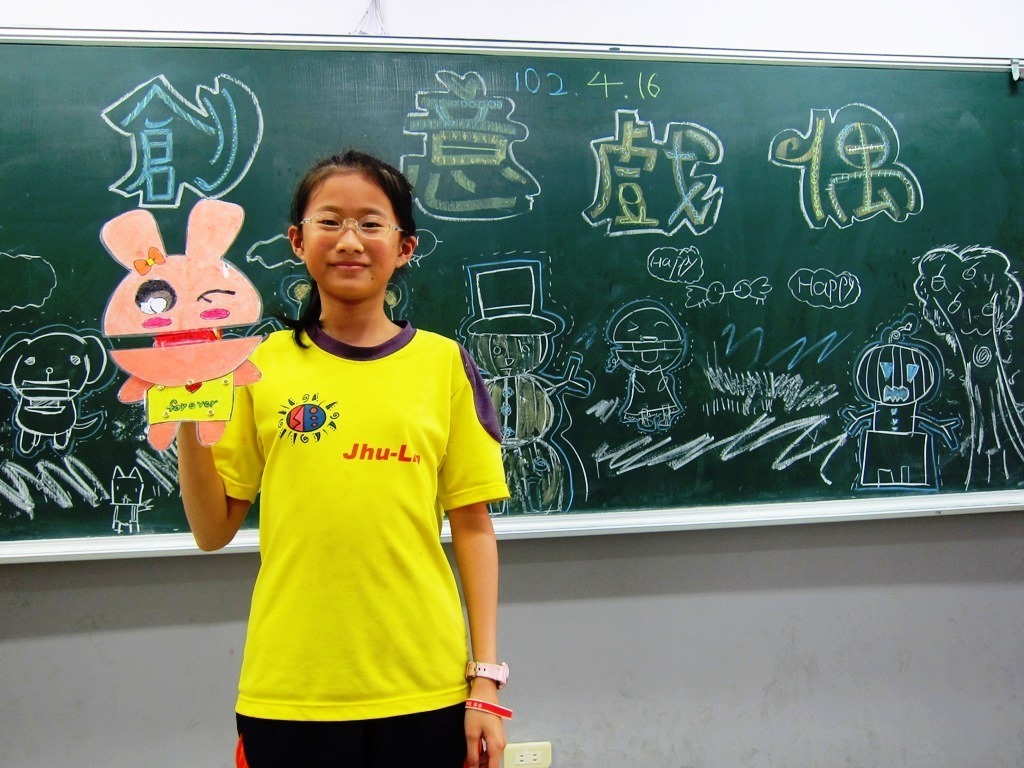 102. 4. 16
創意戲偶
Happy
Happy
forever
Jhu-L